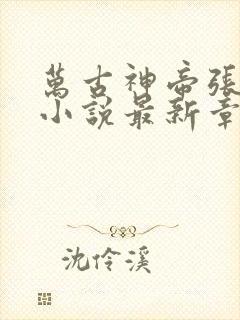 萬古神帝張
小說最新章
沈伶溪